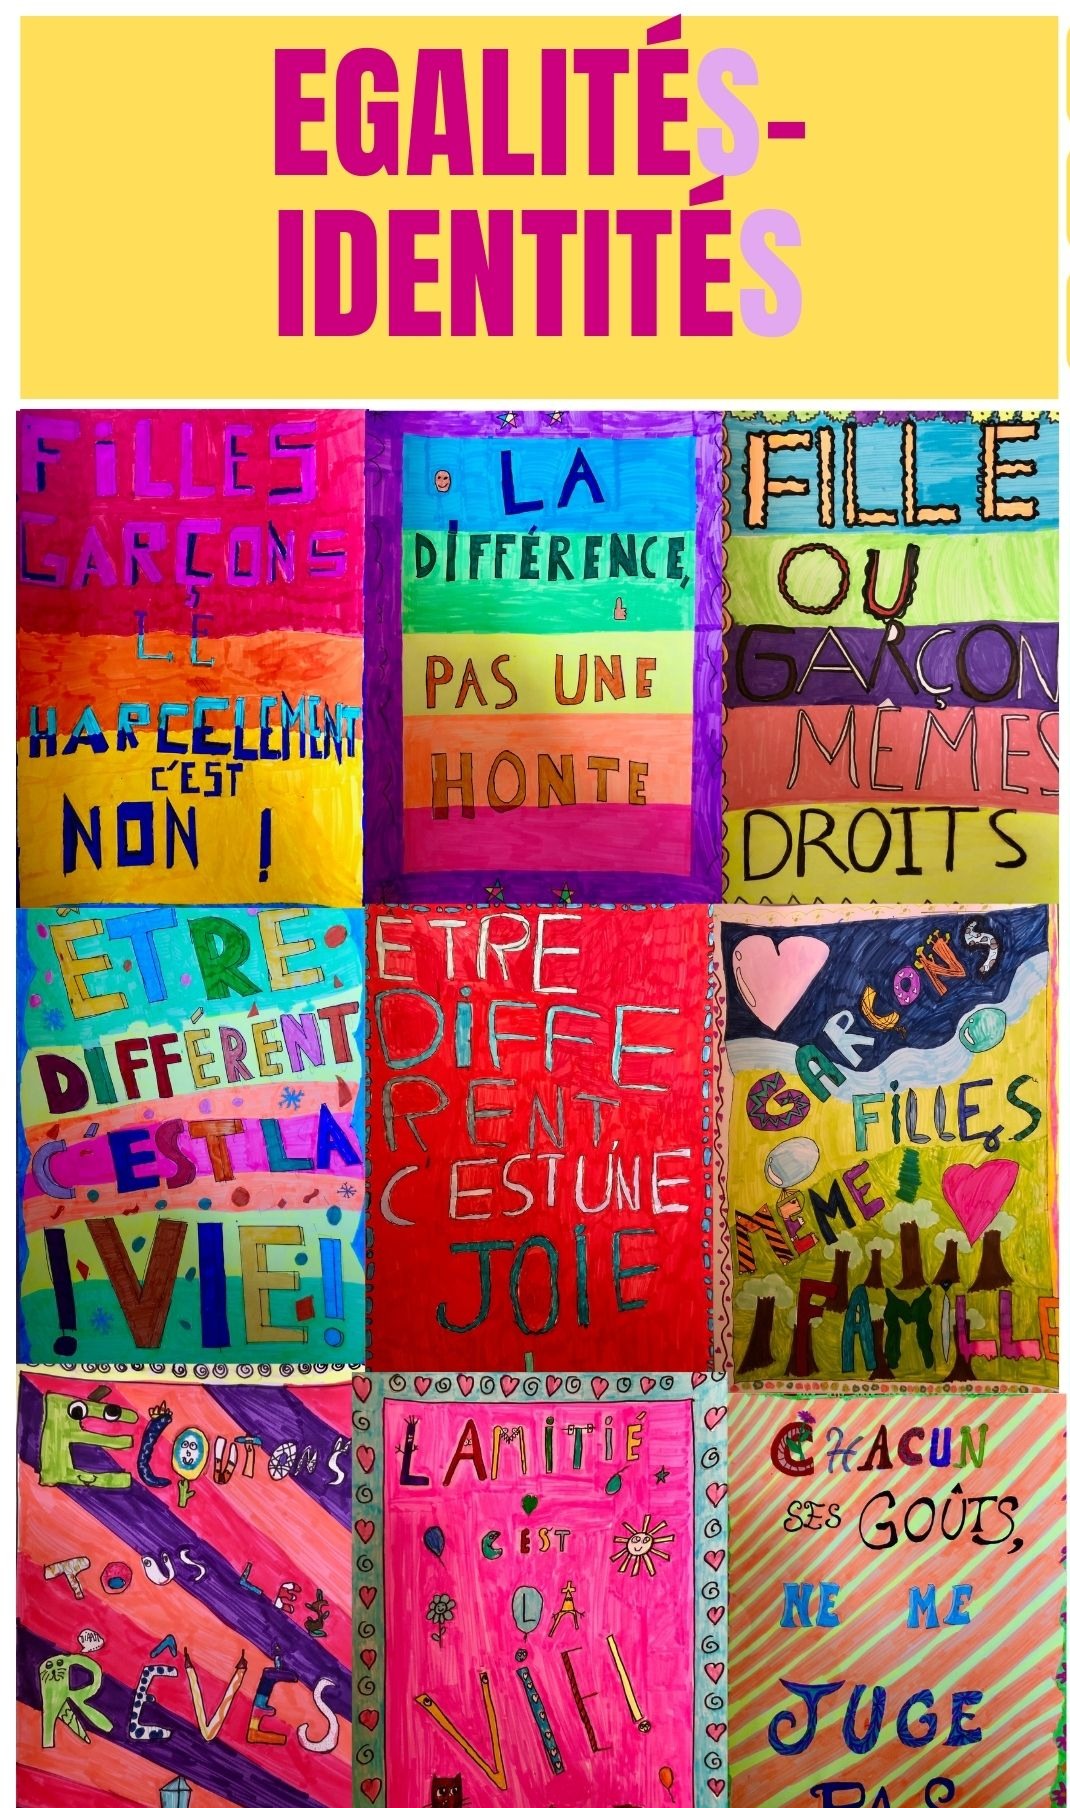 EGALITÉS-
IDENTITÉS
FILLES
GARÇONS
LE
HARCELEMENT
C'EST
NON !
LA
DIFFÉRENCE,
PAS UNE
HONTE
FILLE
OU
GARÇON
MÊMES
DROITS
ÊTRE
DIFFÉRENT
C'EST LA
! VIE !
ETRE
DIFFE
RENT
C'EST UNE
JOIE
GARÇONS
FILLES
MEME
FAMILLE
ÉCOUTONS
TOUS LES
RÊVES
L'AMITIÉ
C'EST
LA
VIE!
CHACUN
SES GOÛTS,
NE ME
JUGE
PAS